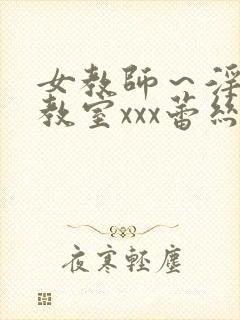 女教师～淫
教室xxx蕾丝
夜寒輕塵